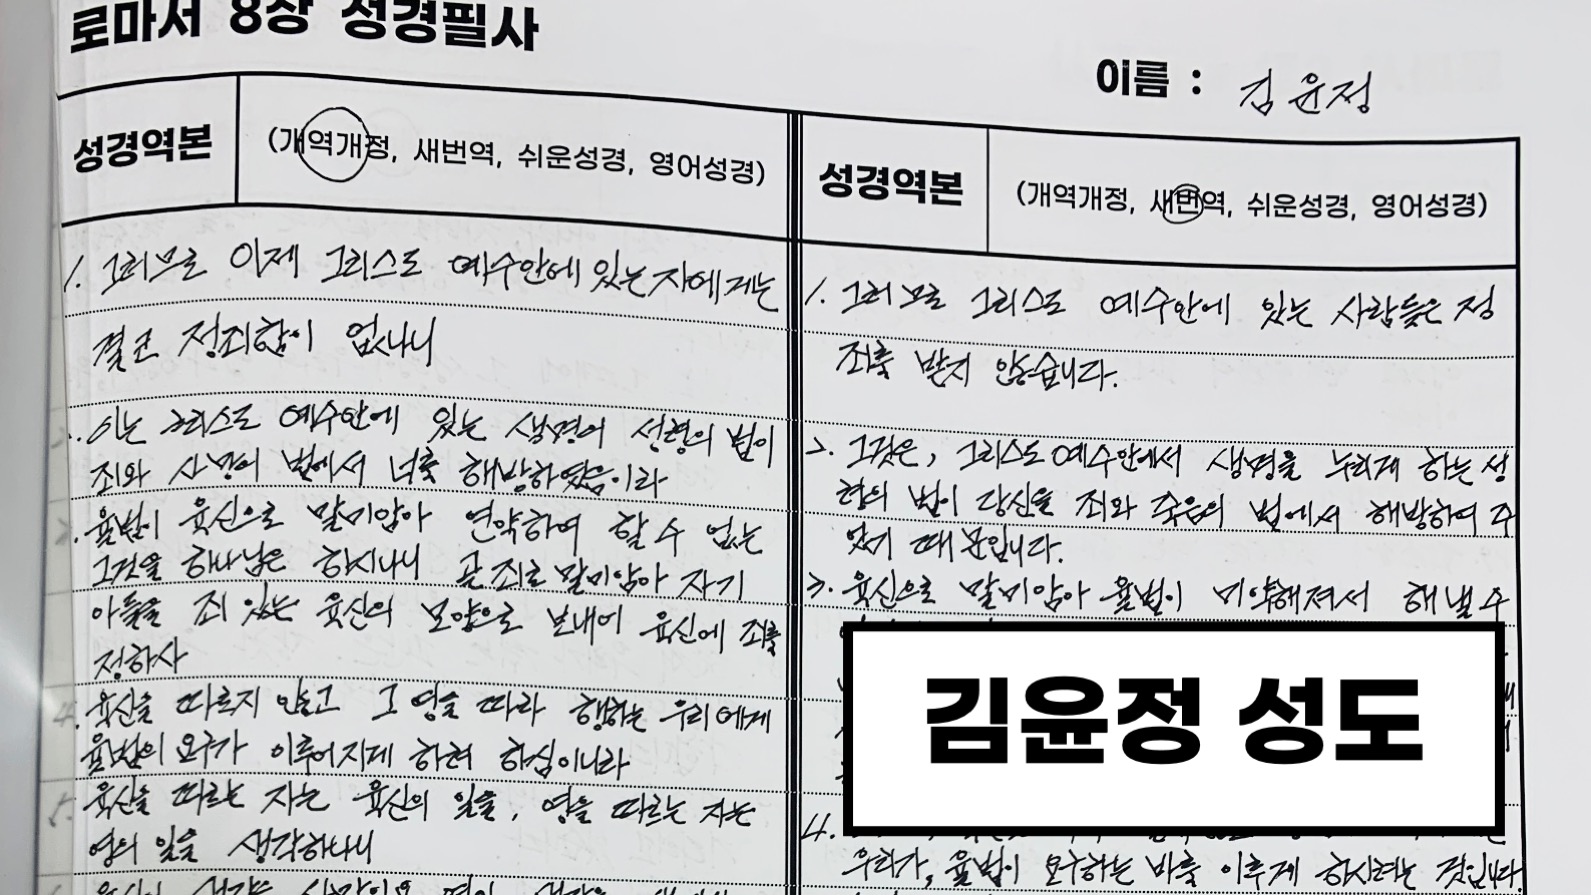 로마서 8장 성경필사
이름 : 김윤정
성경역본
(개역개정, 새번역, 쉬운성경, 영어성경)
1. 그러므로 이제 그리스도 예수안에 있는 자에게는
결코 정죄함이 없나니
2. 이는 그리스도 예수안에 있는 생명의 성령의 법이
죄와 사망의 법에서 너를 해방하였음이라
3. 율법이 육신으로 말미암아 연약하여 할 수 없는
그것을 하나님은 하시나니 곧 죄로 말미암아 자기
아들을 죄 있는 육신의 모양으로 보내어 육신에 죄를
정하사
4. 육신을 따르지 않고 그 영을 따라 행하는 우리에게
율법의 요구가 이루어지게 하려 하심이니라
5. 육신을 따르는 자는 육신의 일을, 영을 따르는 자는
영의 일을 생각하나니
성경역본
(개역개정, 새번역, 쉬운성경, 영어성경)
1. 그러므로 그리스도 예수안에 있는 사람들은 정
죄를 받지 않습니다.
2. 그것은, 그리스도 예수안에서 생명을 누리게 하는 성
령의 법이 당신을 죄와 죽음의 법에서 해방하여 주
었기 때문입니다.
3. 육신으로 말미암아 율법이 미약해져서 해낼 수
4.
우리가, 율법이 요구하는 바를 이루게 하시려는 것입니다
김윤정 성도